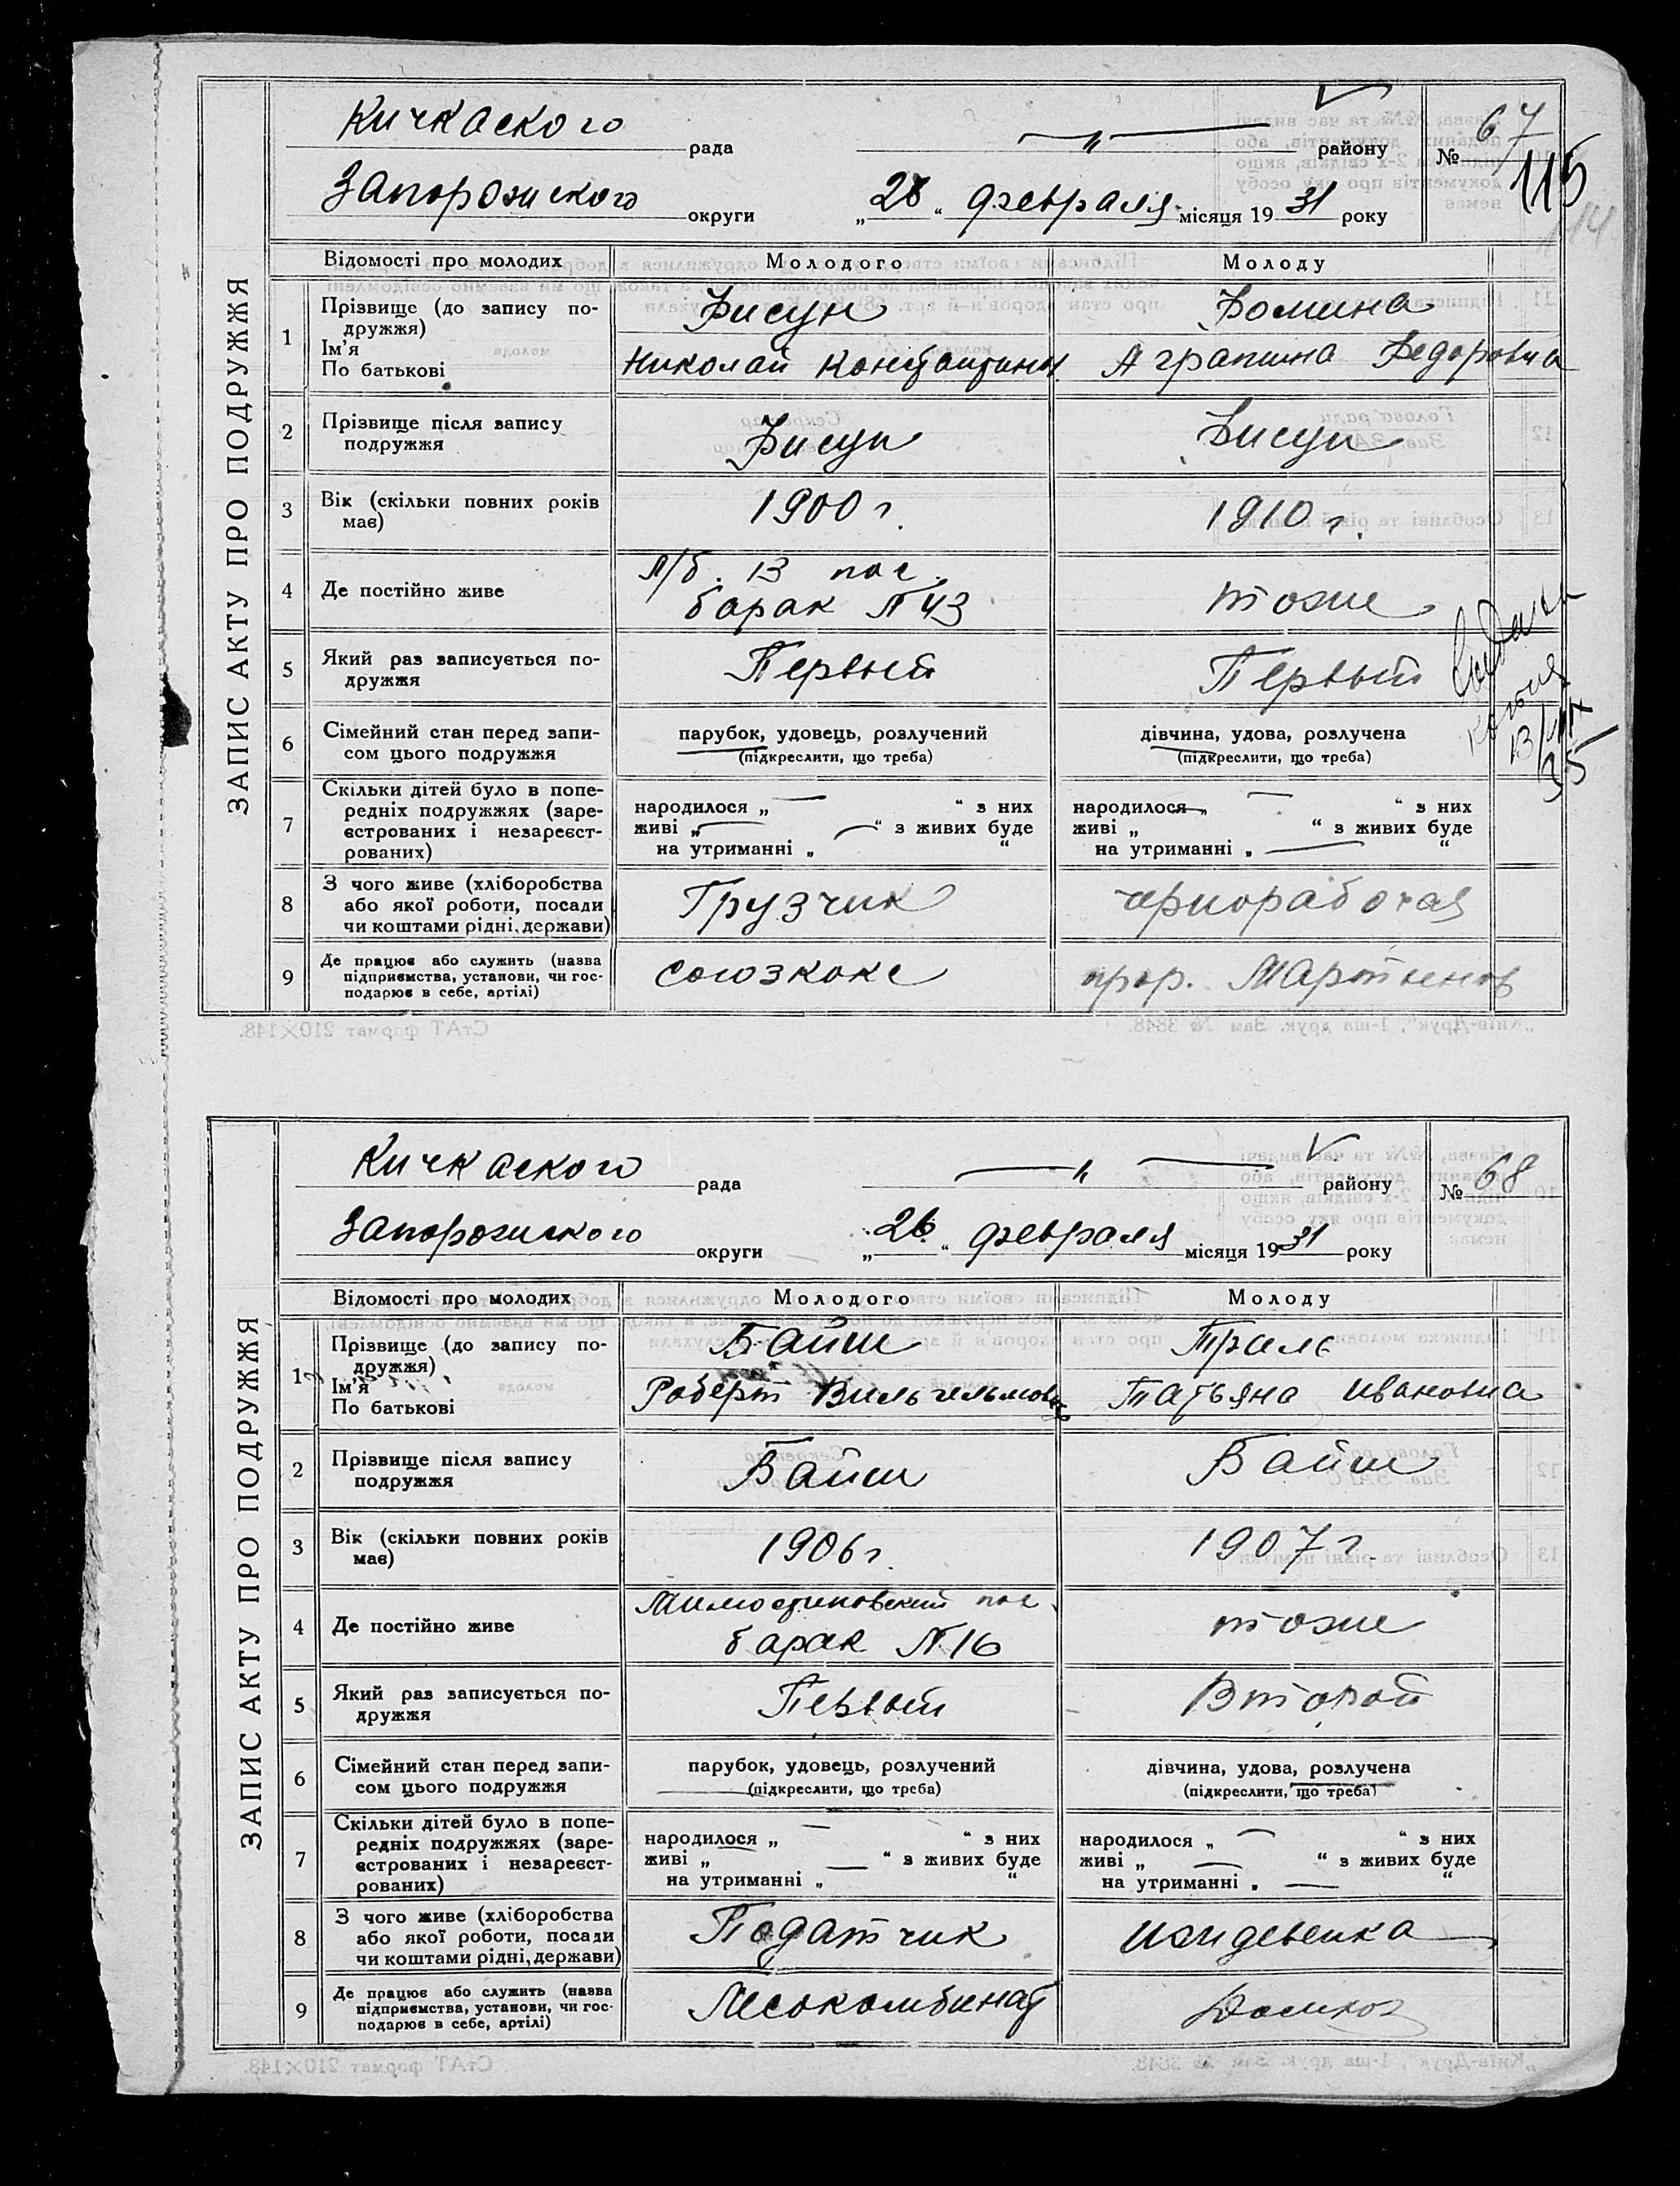 Кичкаского рада " району № 67
115
114
Запорожского округи „28“ февраля місяця 1931 року
ЗАПИС АКТУ ПРО ПОДРУЖЖЯ
Відомості про молодих Молодого Молоду
1 Прізвище (до запису по-
дружжя)
Фисун Фомина
Ім'я
По батькові
Николай Константинов. Аграпина Федоровна
2 Прізвище після запису
подружжя
Фисун Фисун
3 Вік (скільки повних років
має)
1900 г. 1910 г.
4 Де постійно живе
п/б. 13 пос.
барак № 43 тоже
5 Який раз записується по-
дружжя
Первый Первый
13/
35
6 Сімейний стан перед запи-
сом цього подружжя
парубок, удовець, розлучений дівчина, удова, розлучена
(підкреслити, що треба) (підкреслити, що треба)
7 Скільки дітей було в попе-
редніх подружжях (заре-
єстрованих і незареєст-
рованих)
народилося „ — “ з них народилося — “ з них
живі „ — “ з живих буде живі „ “ з живих буде
на утриманні „ “ на утриманні „ — “
8 З чого живе (хліборобства
або якої роботи, посади
чи коштами рідні, держави)
Грузчик чернорабочая
9 Де працює або служить (назва
підприємства, установи, чи гос-
подарює в себе, артілі)
Союзкокс прор. Мартынов
СтАТ формат 210×148. „Київ-Друк“, 1-ша друк. Зам № 3848.
Кичкаского рада " району № 68
Запорожского округи „26“ февраля місяця 1931 року
ЗАПИС АКТУ ПРО ПОДРУЖЖЯ
Відомості про молодих Молодого Молоду
1 Прізвище (до запису по-
дружжя)
Байш Траль
Ім'я
По батькові
Роберт Вильгельмович Татьяна Ивановна
2 Прізвище після запису
подружжя
Байш Байш
3 Вік (скільки повних років
має)
1906 г. 1907 г.
4 Де постійно живе
пос.
барак № 16 тоже
5 Який раз записується по-
дружжя
Первый Второй
6 Сімейний стан перед запи-
сом цього подружжя
парубок, удовець, розлучений дівчина, удова, розлучена
(підкреслити, що треба) (підкреслити, що треба)
7 Скільки дітей було в попе-
редніх подружжях (заре-
єстрованих і незареєст-
рованих)
народилося „ — “ з них народилося „ — “ з них
живі „ — “ з живих буде живі „ — “ з живих буде
на утриманні „ “ на утриманні „ — “
8 З чого живе (хліборобства
або якої роботи, посади
чи коштами рідні, держави)
Податчик иждевенка
9 Де працює або служить (назва
підприємства, установи, чи гос-
подарює в себе, артілі)
Лесокомбинат Домхоз
СтАТ формат 210×148. „Київ-Друк“, 1-ша друк. Зам № 3848.